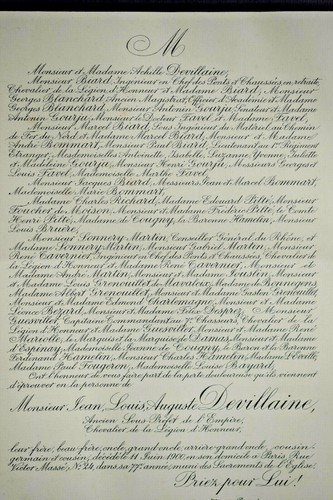 M
Monsieur et Madame Achille Devillaine,
Monsieur Biard, Ingénieur en Chef des Ponts et Chaussées, en retraite,
Chevalier de la Légion d'Honneur et Madame Biard, Monsieur
Georges Blanchard, Ancien Magistrat, Officier d'Académie et Madame
Georges Blanchard, Monsieur Antonin Gourju, Sénateur et Madame
Antonin Gourju, Monsieur le Docteur Favel et Madame Favel,
Monsieur Marcel Biard, Sous Ingénieur du Matériel au Chemin
de Fer du Nord et Madame Marcel Biard, Monsieur et Madame
André Bommart, Monsieur Paul Biard, Lieutenant au 1er Régiment
Etranger, Mesdemoiselles Antoinette, Isabelle, Suzanne, Yvonne, Juliette
et Madeleine Gourju, Monsieur Henri Gourju, Messieurs Georges et
Louis Favel, Mademoiselle Marthe Favel,
Monsieur Jacques Biard, Messieurs Jean et Marcel Bommart,
Mademoiselle Marie Bommart,
Madame Charles Richard, Madame Edouard Pitté, Monsieur
de Moison, Monsieur et Madame Frédéric Pitté, le Comte
Henri Pitté, Madame de Cougny, la Baronne Hamelin, Monsieur
Louis Bruère,
Monsieur Sonnery Martin, Conseiller Général du Rhône, et
Madame Sonnery Martin, Monsieur Gabriel Martin, Monsieur
René Tavernier, Ingénieur en Chef des Ponts et Chaussées, Chevalier de
la Légion d'Honneur et Madame René Tavernier, Monsieur et
Madame André Martin, Monsieur et Madame Martin, Monsieur
et Madame Louis de Madame de Bonnegens,
Madame Albert Monsieur et Madame Gaston
Monsieur et Madame Edmond Charlemagne, Monsieur et Madame
Léonce Bezard, Monsieur et Madame Félix Monsieur
Capitaine Commandant au Chasseurs, Chevalier de la
Légion d'Honneur et Madame Monsieur et Madame René
le Marquis et la Marquise de Damas, Monsieur et Madame
d'Espinay, Mademoiselle Jeanne de Cougny, le Baron et la Baronne
Ferdinand Hamelin, Monsieur Charles Hamelin, Madame
Madame Paul Fougeron, Mademoiselle Louise Bayard,
Ont l'honneur de vous faire part de la perte douloureuse qu'ils viennent
d'éprouver en la personne de
Monsieur Jean, Louis, Auguste Devillaine,
Ancien Sous Préfet de l'Empire,
Chevalier de la Légion d'Honneur,
leur frère, beau-frère, oncle, grand-oncle, arrière-grand-oncle, cousin-
germain et cousin, décédé le 1er Juin 1908, en son domicile à Paris Rue
Victor Massé, No 24, dans sa 77e année, muni des Sacrements de l'Eglise.
Priez pour Lui!